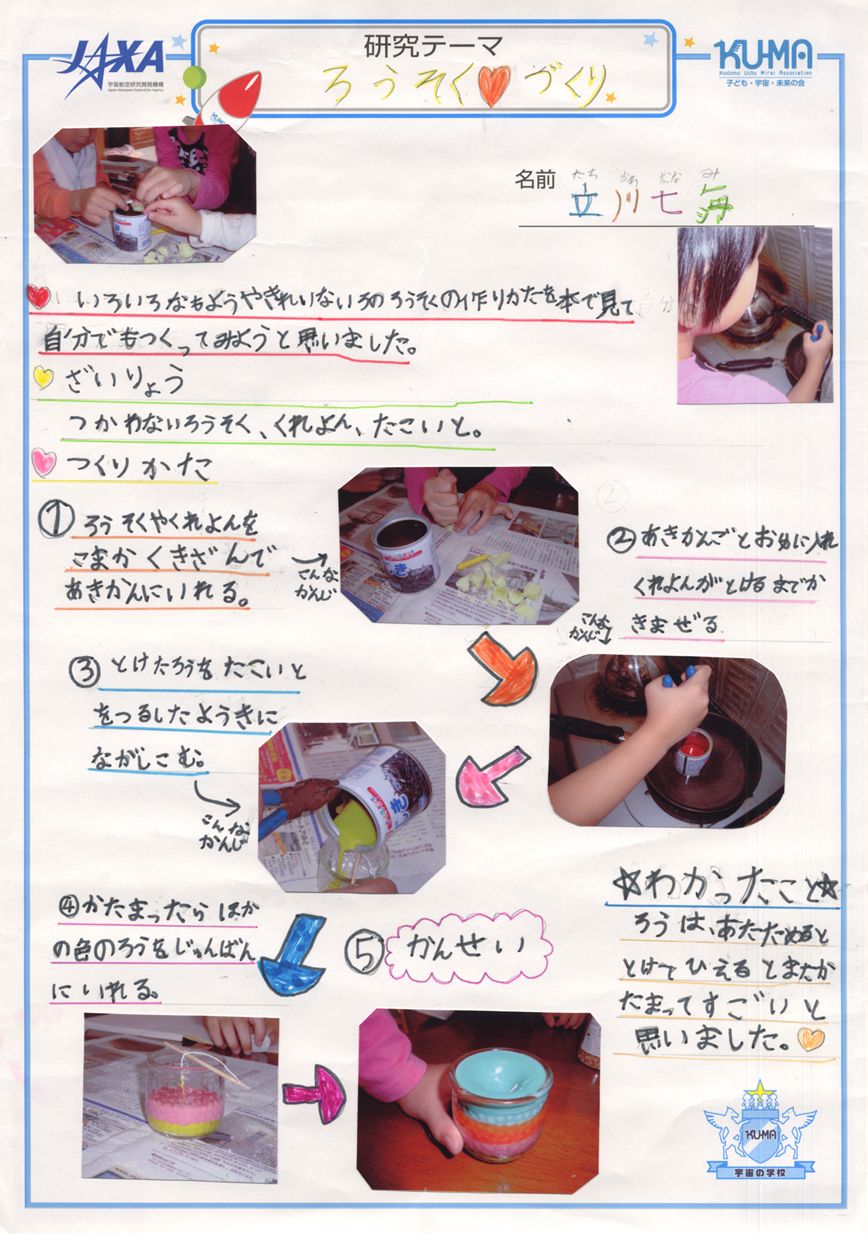 JAXA
宇宙航空研究開発機構
Japan Aerospace Exploration Agency
研究テーマ
ろうそく♥づくり
KU-MA
Kodomo Uchu Mirai Association
子ども・宇宙・未来の会
KU-MA
名前
たち かわ なな み
立川七海
いろいろなもようやきれいないろのろうそくの作りかたを本で見て
自分でもつくってみようと思いました。
ざいりょう
つかわないろうそく、くれよん、たこいと。
つくりかた
① ろうそくやくれよんを
こまかくきざんで
あきかんにいれる。
こんな
かんじ
② あきかんごとおゆに入れ
くれよんがとけるまでか
きまぜる
こんな
かんじ
③ とけたろうをたこいと
をつるしたようきに
ながしこむ。
こんな
かんじ
④ かたまったらほか
の色のろうをじゅんばん
にいれる。
⑤ かんせい
☆わかったこと☆
ろうは、あたためると
とけてひえるとまたか
たまってすごいと
思いました。
KU-MA
宇宙の学校